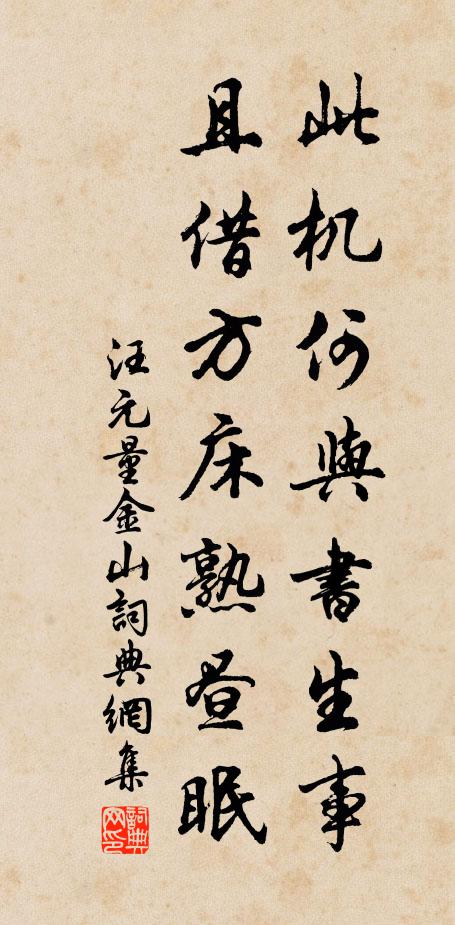 此机何與書生事
且借方床熟昼眠
汪元量金山詞典網集
詞典网印